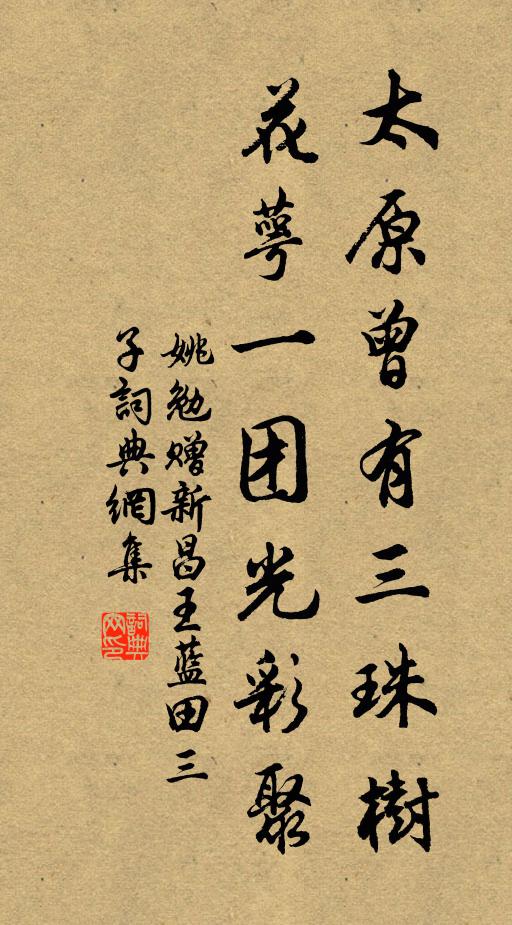 太原曾有三珠樹
花萼一团光彩聚
姚勉赠新昌王藍田三
子詞典網集
詞典网印